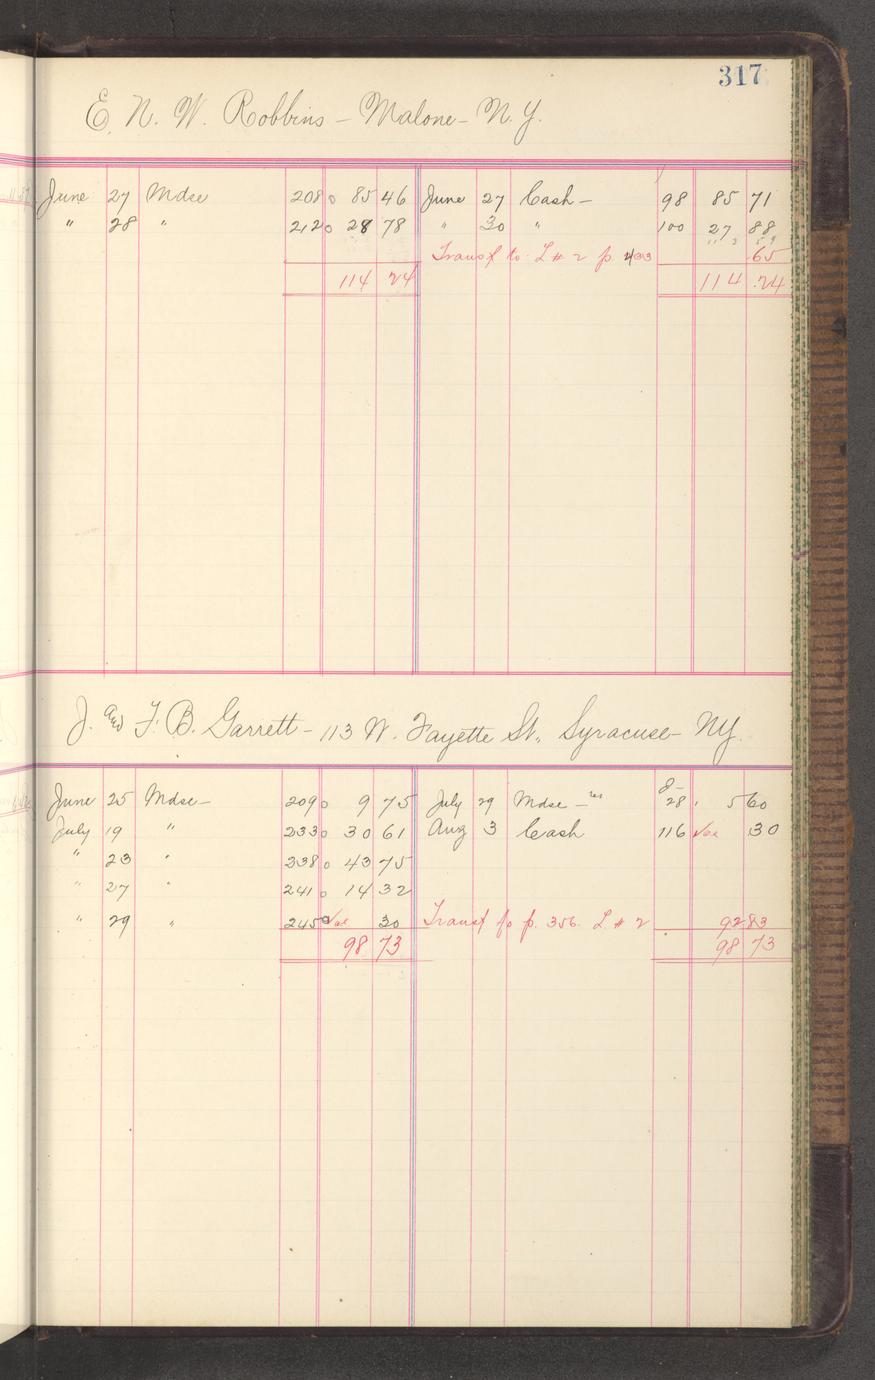 317
E. N. W. Robbins - Malone - N. Y.
June 27 Mdse 208 85 46 June 27 Cash - 98 85 71
" 28 " 212 28 78 " 30 " 100 27 88
Transf to L # 2 p. 403 .65
114 24 114 .24
J. and F. B. Garrett - 113 W. Fayette St., Syracuse - NY.
June 25 Mdse - 209 9 75 July 29 Mdse - J- 28 5 60
July 19 " 233 30 61 Aug 3 Cash 116 30
" 23 " 238 43 75
" 27 " 241 14 32
" 29 " 245 30 Transf to p. 356. L # 2 92 83
98 73 98 73